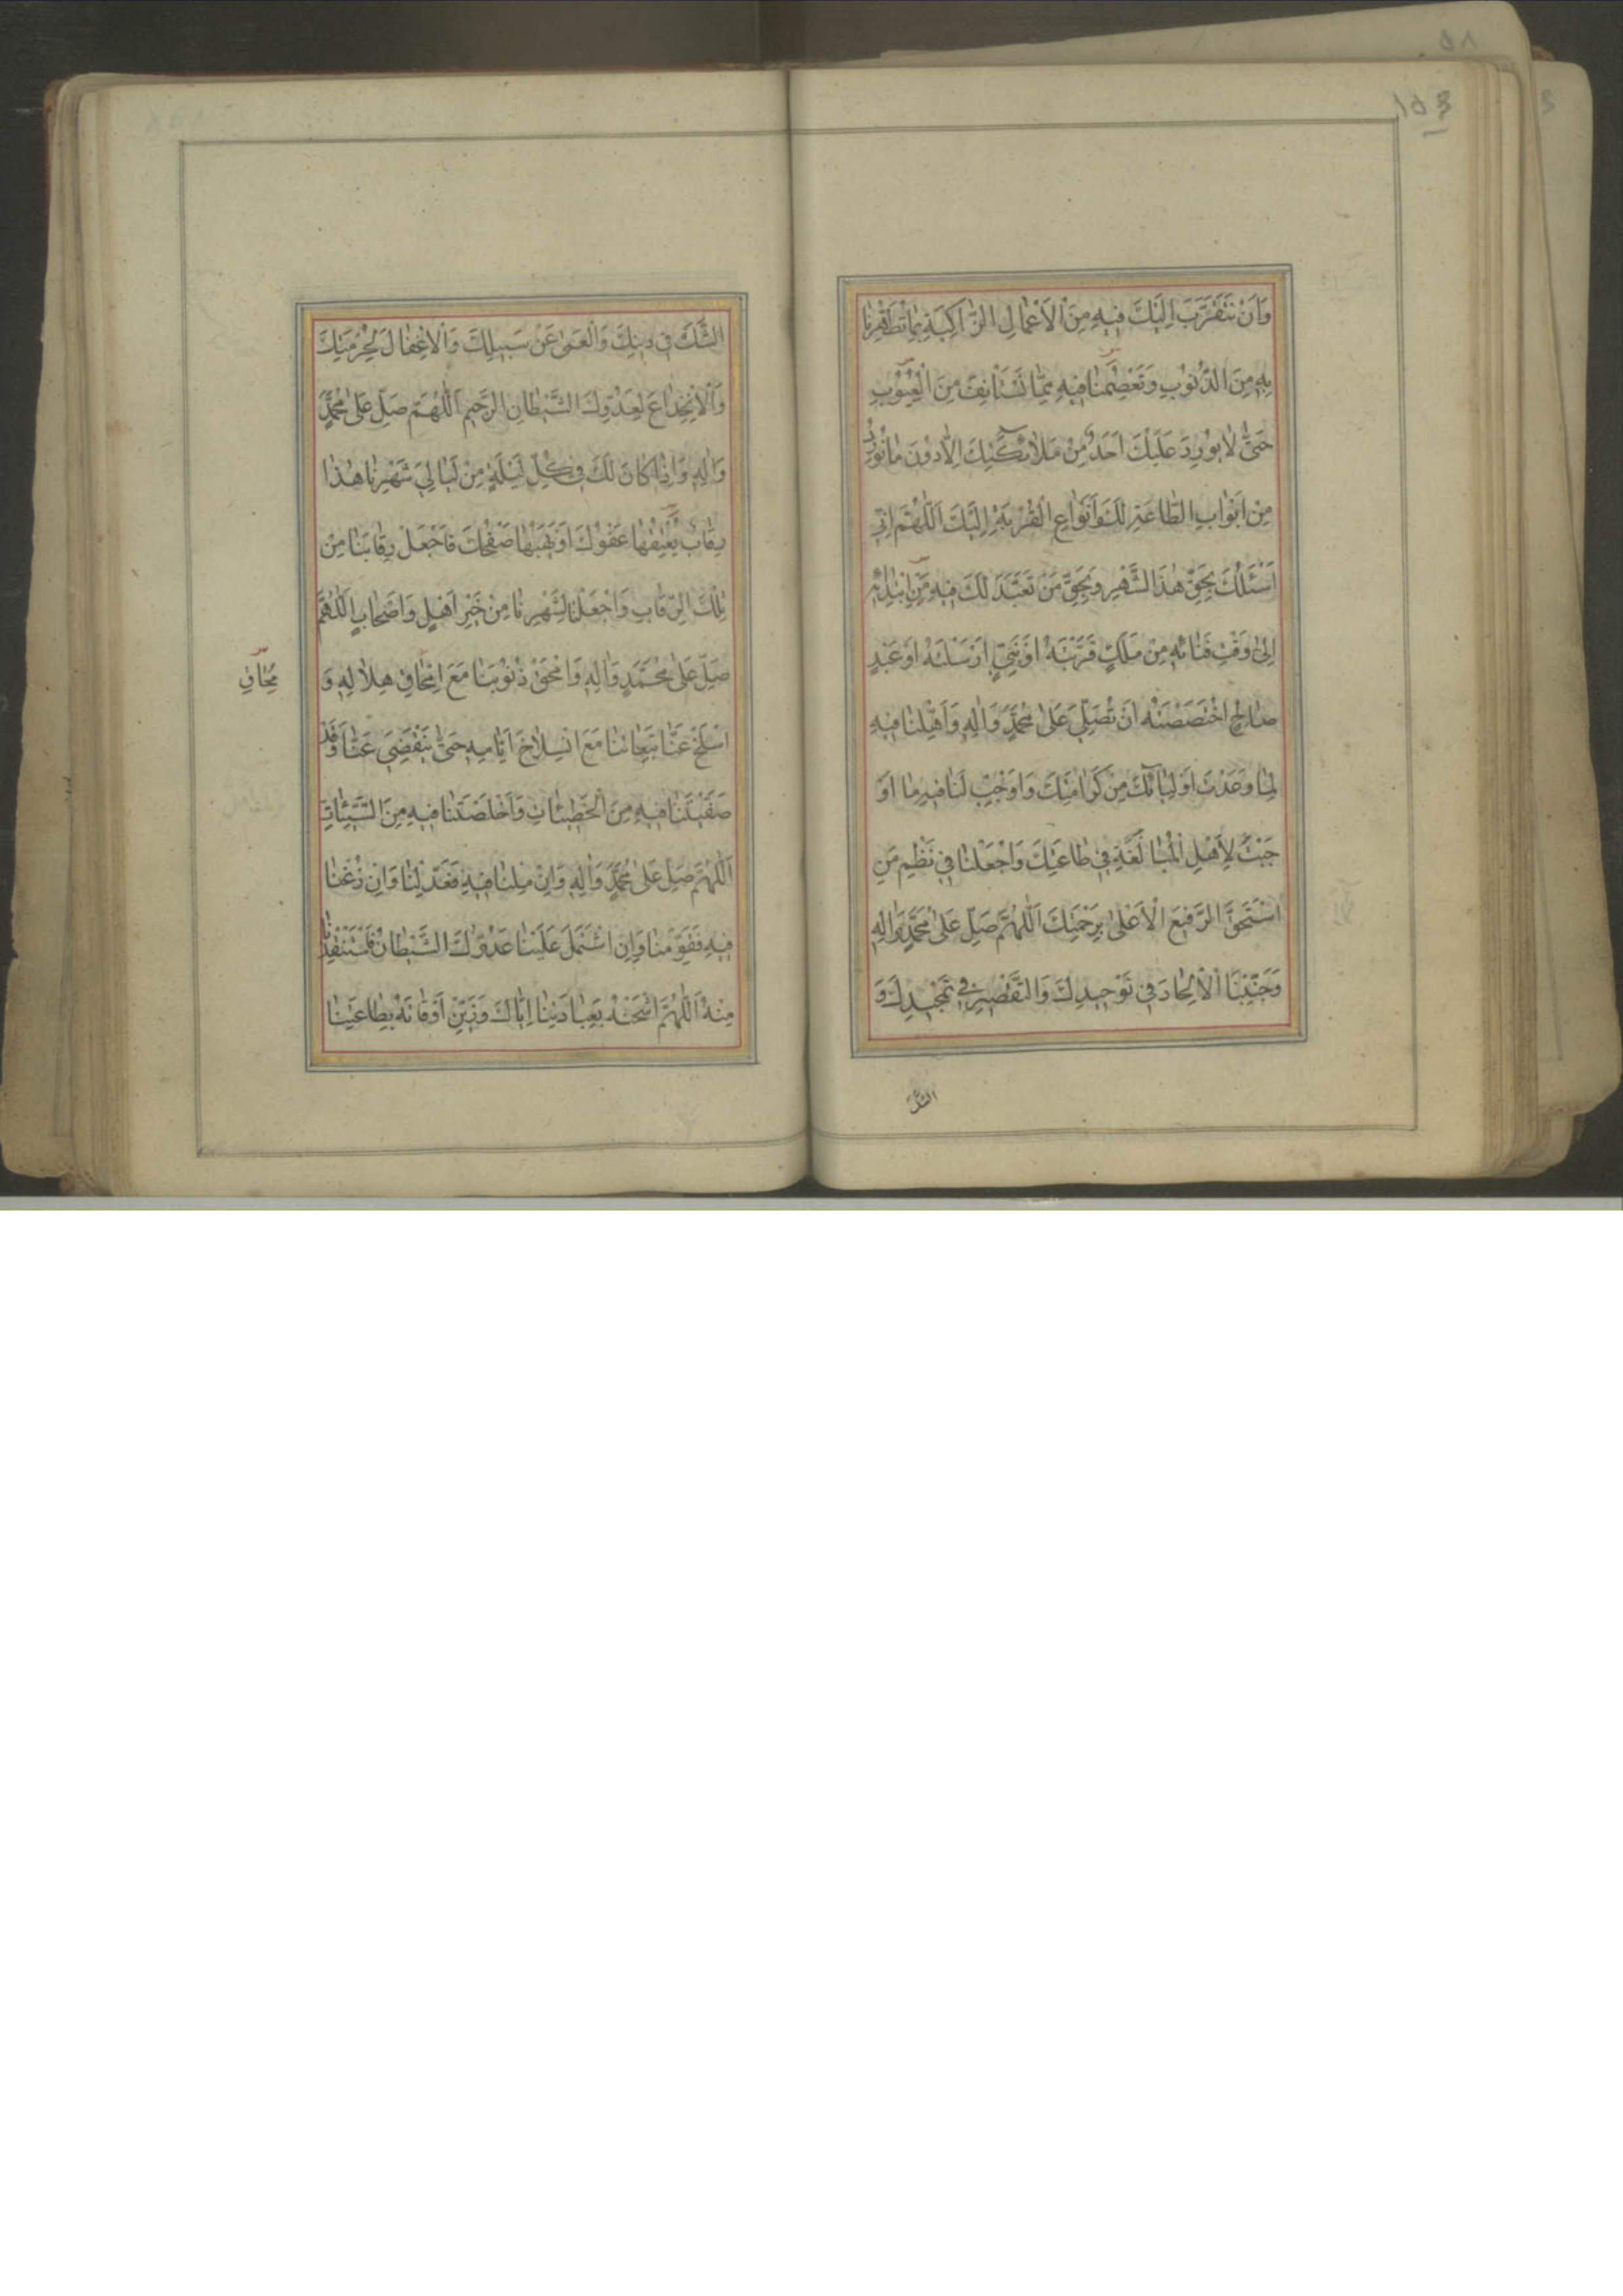 ١٥٤
وَاَنْ نَتَقَرَّبَ اِلَيْكَ فيهِ مِنَ الْاَعْمالِ الزّاكِيَةِ بِما تُطَهِّرُنا
بِهِ مِنَ الذُّنُوبِ وَتَعْصِمُنا فيهِ مِمّا نَسْتَأْنِفُ مِنَ الْعُيُوبِ
حَتّى لا يُورِدَ عَلَيْكَ اَحَدٌ مِنْ مَلائِكَتِكَ اِلّا دُونَ ما نُورِدُ
مِنْ اَبْوابِ الطّاعَةِ لَكَ وَاَنْواعِ الْقُرْبَةِ اِلَيْكَ اَللّهُمَّ اِنّي
اَسْئَلُكَ بِحَقِّ هذَا الشَّهْرِ وَبِحَقِّ مَنْ تَعَبَّدَ لَكَ فيهِ مِنِ ابْتِدائِهِ
اِلى وَقْتِ فَنائِهِ مِنْ مَلَكٍ قَرَّبْتَهُ اَوْ نَبِيٍّ اَرْسَلْتَهُ اَوْ عَبْدٍ
صالِحٍ اخْتَصَصْتَهُ اَنْ تُصَلِّيَ عَلى مُحَمَّدٍ وَالِهِ وَاَهِّلْنا فيهِ
لِما وَعَدْتَ اَوْلِيائَكَ مِنْ كَرامَتِكَ وَاَوْجِبْ لَنا فيهِ ما اَوْ
جَبْتَ لِاَهْلِ الْمُبالَغَةِ في طاعَتِكَ وَاجْعَلْنا في نَظْمِ مَنِ
اسْتَحَقَّ الرَّفيعَ الْاَعْلى بِرَحْمَتِكَ اَللّهُمَّ صَلِّ عَلى مُحَمَّدٍ وَالِهِ
وَجَنِّبْنَا الْاِلْحادَ في تَوْحيدِكَ وَالتَّقْصيرَ في تَمْجيدِكَ وَ
الشَّكَّ
الشَّكَّ في دينِكَ وَالْعَمى عَنْ سَبيلِكَ وَالْاِغْفالَ لِحُرْمَتِكَ
وَالْاِنْخِداعَ لِعَدُوِّكَ الشَّيْطانِ الرَّجيمِ اَللّهُمَّ صَلِّ عَلى مُحَمَّدٍ
وَالِهِ وَاِذا كانَ لَكَ في كُلِّ لَيْلَةٍ مِنْ لَيالي شَهْرِنا هذا
رِقابٌ يُعْتِقُها عَفْوُكَ اَوْ يَهَبُها صَفْحُكَ فَاجْعَلْ رِقابَنا مِنْ
تِلْكَ الرِّقابِ وَاجْعَلْنا لِشَهْرِنا مِنْ خَيْرِ اَهْلٍ وَاَصْحابٍ اَللّهُمَّ
صَلِّ عَلى مُحَمَّدٍ وَالِهِ وَامْحَقْ ذُنُوبَنا مَعَ امْحاقِ هِلالِهِ وَ
مِحاقِ
اسْلَخْ عَنّا تَبِعاتِنا مَعَ انْسِلاخِ اَيّامِهِ حَتّى يَنْقَضِيَ عَنّا وَقَدْ
صَفَّيْتَنا فيهِ مِنَ الْخَطيئاتِ وَاَخْلَصْتَنا فيهِ مِنَ السَّيِّئاتِ
اَللّهُمَّ صَلِّ عَلى مُحَمَّدٍ وَالِهِ وَاِنْ مِلْنا فيهِ فَعَدِّلْنا وَاِنْ زُغْنا
فيهِ فَقَوِّمْنا وَاِنِ اشْتَمَلَ عَلَيْنا عَدُوُّكَ الشَّيْطانُ فَاسْتَنْقِذْنا
مِنْهُ اَللّهُمَّ اشْحَنْهُ بِعِبادَتِنا اِيّاكَ وَزَيِّنْ اَوْقاتَهُ بِطاعَتِنا